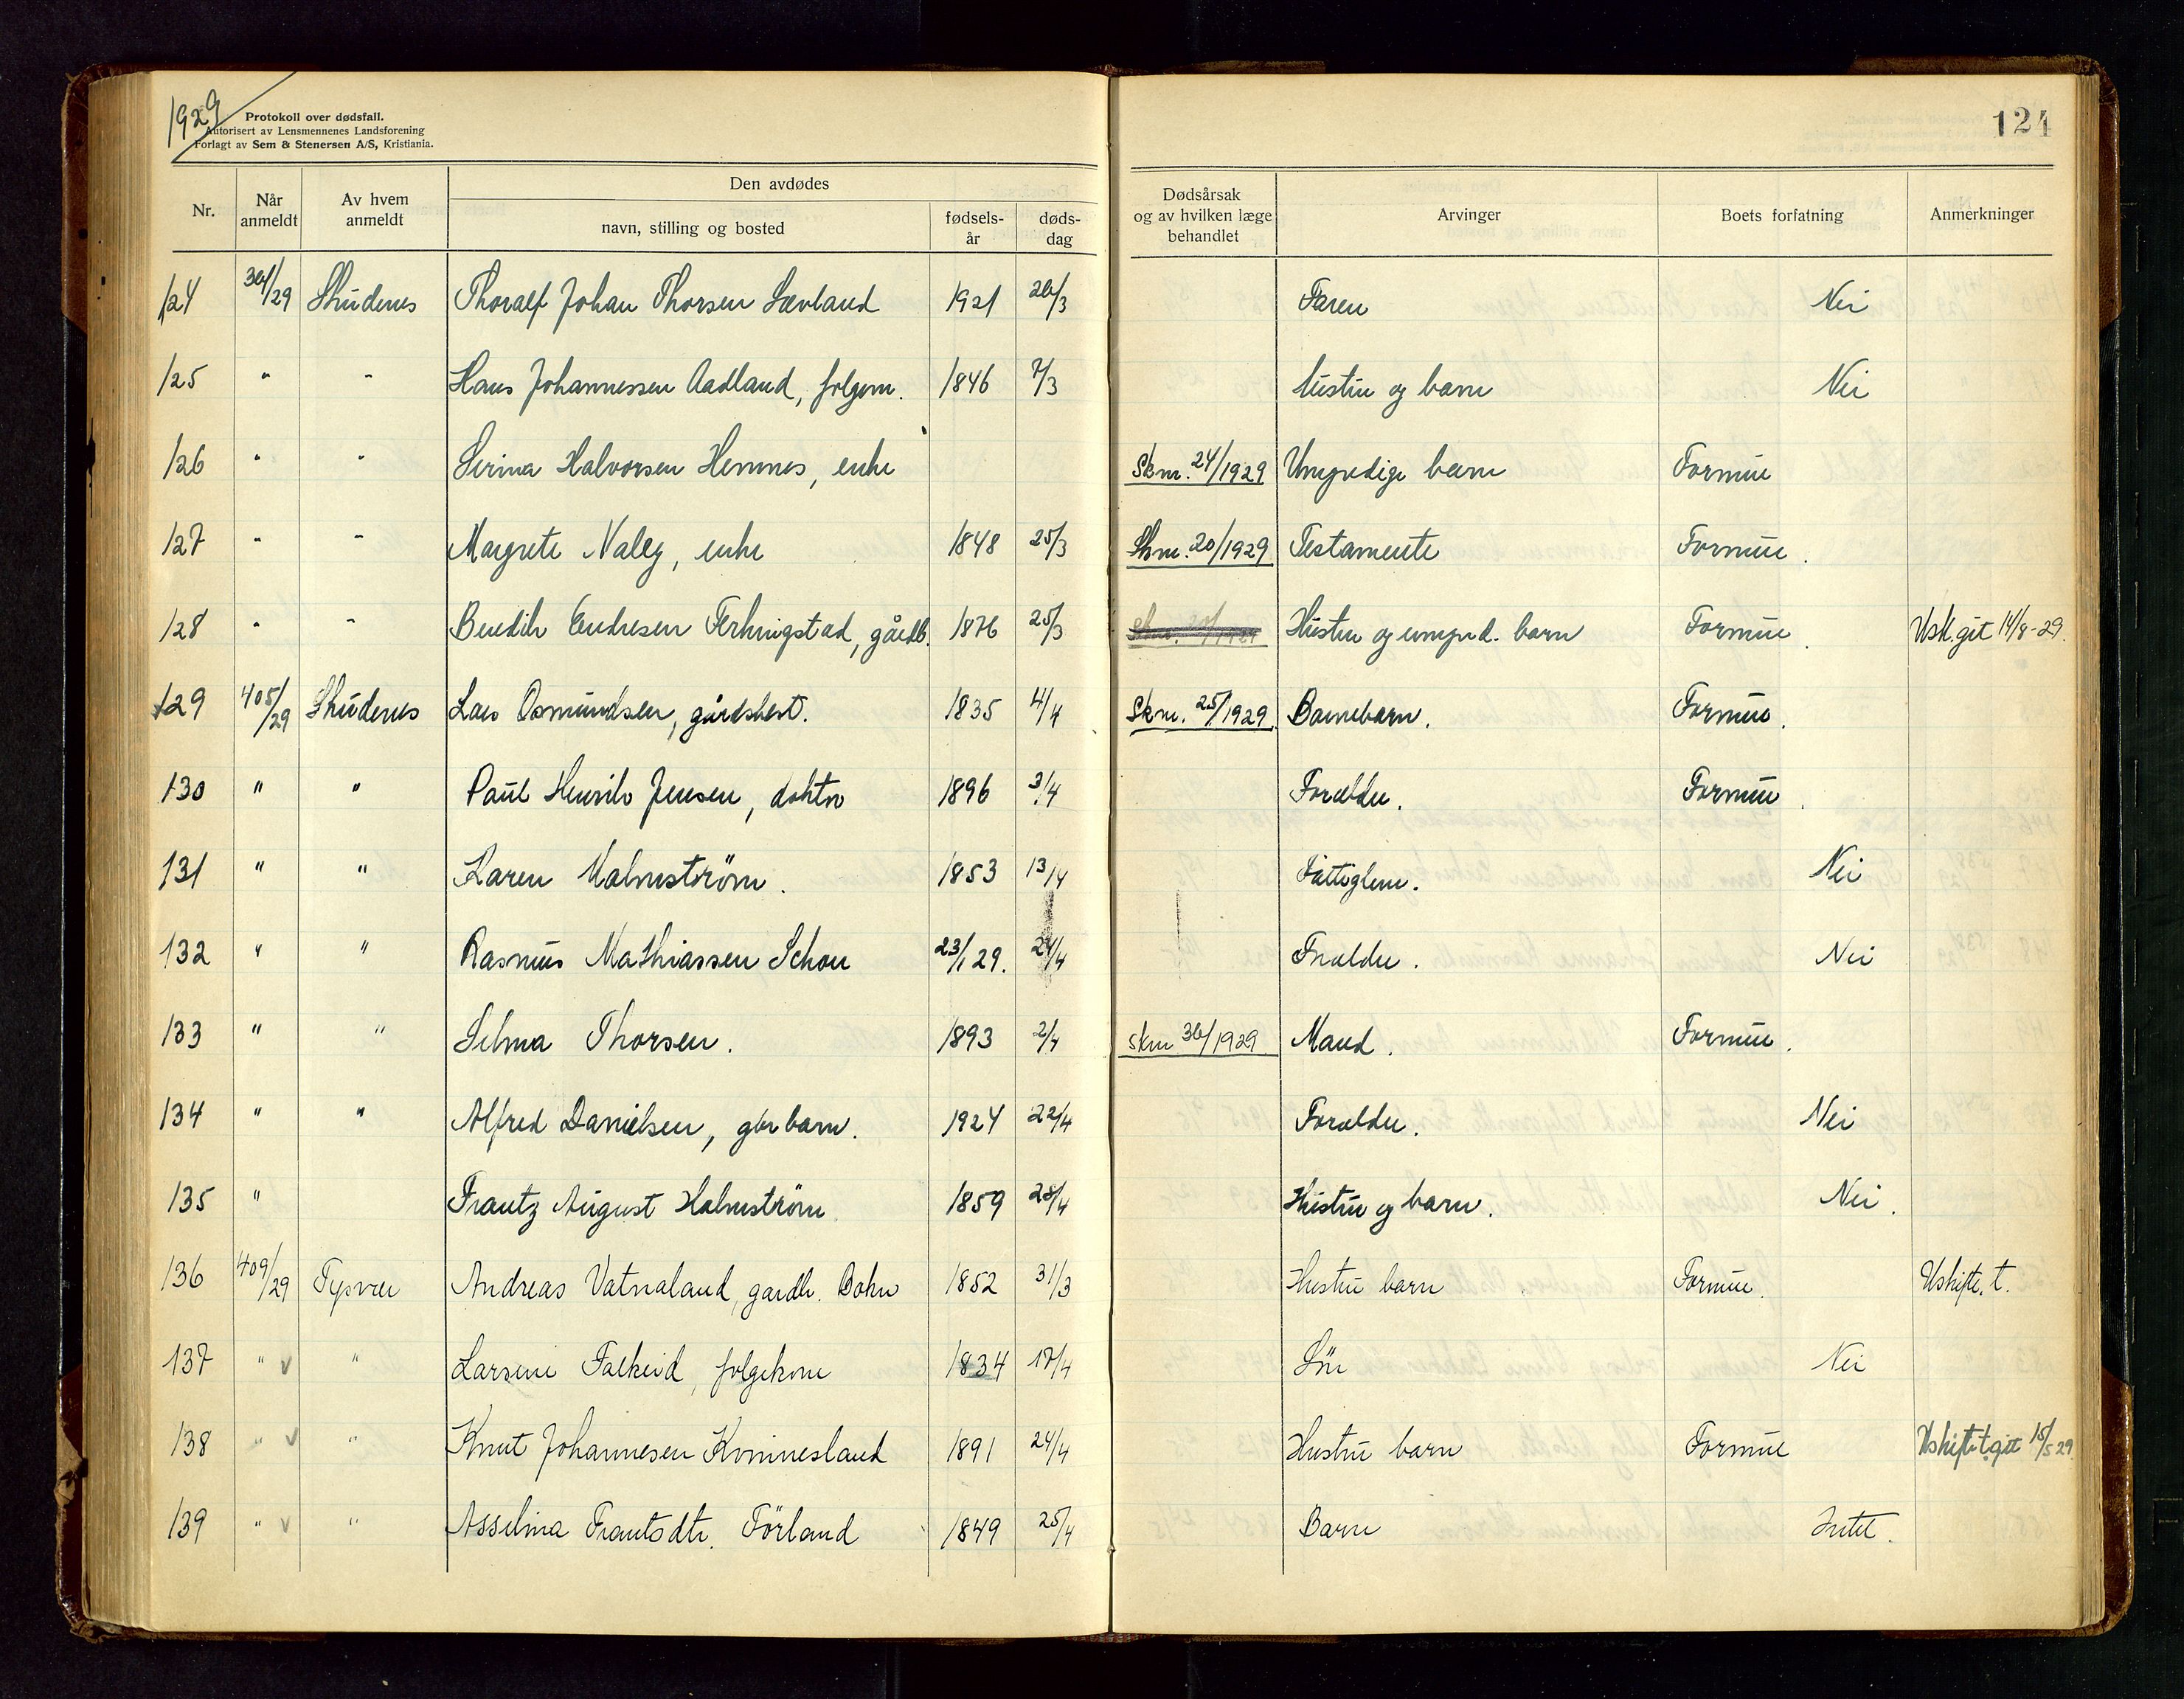 1929
Protokoll over dødsfall.
Autorisert av Lensmennenes Landsforening
Forlagt av Sem & Stenersen A/S, Kristiania.
124
Nr. Når anmeldt Av hvem anmeldt Den avdødes navn, stilling og bosted fødselsår dødsdag Dødsårsak og av hvilken læge behandlet Arvinger Boets forfatning Anmerkninger
124 /29 Skudenes Thoralf Johan Thorsen Sævland 1921 26/3 Faren Nei
125 " " Hans Johannessen Aadland, folgem. 1846 7/3 Hustru og barn Nei
126 " " Serina Halvorsen Hemnes, enke Skm. 24/1929 Umyndige barn Formue
127 " " Margrete Naley, enke 1848 25/3 Skm. 20/1929 Testamente Formue.
128 " " Bendik Endresen Ferkingstad, gårdb. 1876 25/3 Hustru og umynd. barn Formue. Usk.git 14/8-29.
129 405/29 Skudenes Lars Osmundsen, gårdsbest. 1835 4/4 Skm. 25/1929. Barnebarn. Formue.
130 " " Paul Henrik Jensen, doktor 1896 3/4 Forældre. Formue.
131 " " Karen Malmström. 1853 13/4 Fattiglem. Nei
132 " " Rasmus Mathiassen Schou 23/1 29. 24/4 Forældre. Nei
133 " " Selma Thorsen. 1893 2/4 Skm 36/1929 Mand. Formue.
134 " " Alfred Danielsen, gbr barn. 1924 22/4 Forældre. Nei
135 " Frantz August Holmström 1859 28/4 Hustru og barn. Nei.
136 409/29 Tysvær Andreas Vatnaland, gardb. Bokn 1852 31/3 Hustru barn Formue. Uskifte. t.
137 " v " Larsine Falkeid, folgekone 1834 17/4 Sön Nei
138 " v " Knut Johannesen Kvinnesland 1891 24/4 Hustru barn Formue Uskifte t. git 15/5 29.
139 " v " Asselina Frantsdtr. Förland 1849 25/4 Barn Intet.